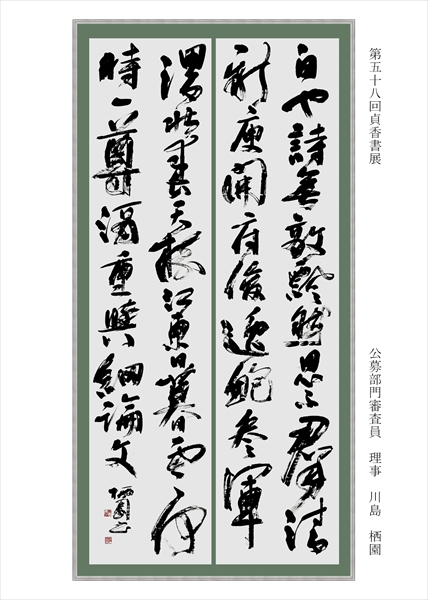 第五十八回貞香書展
公募部門審査員 理事 川島 栖園
白也詩無敵飄然思不羣清
新庾開府俊逸鮑参軍
渭北春天樹江東日暮雲何
時一尊酒重與細論文 栖園